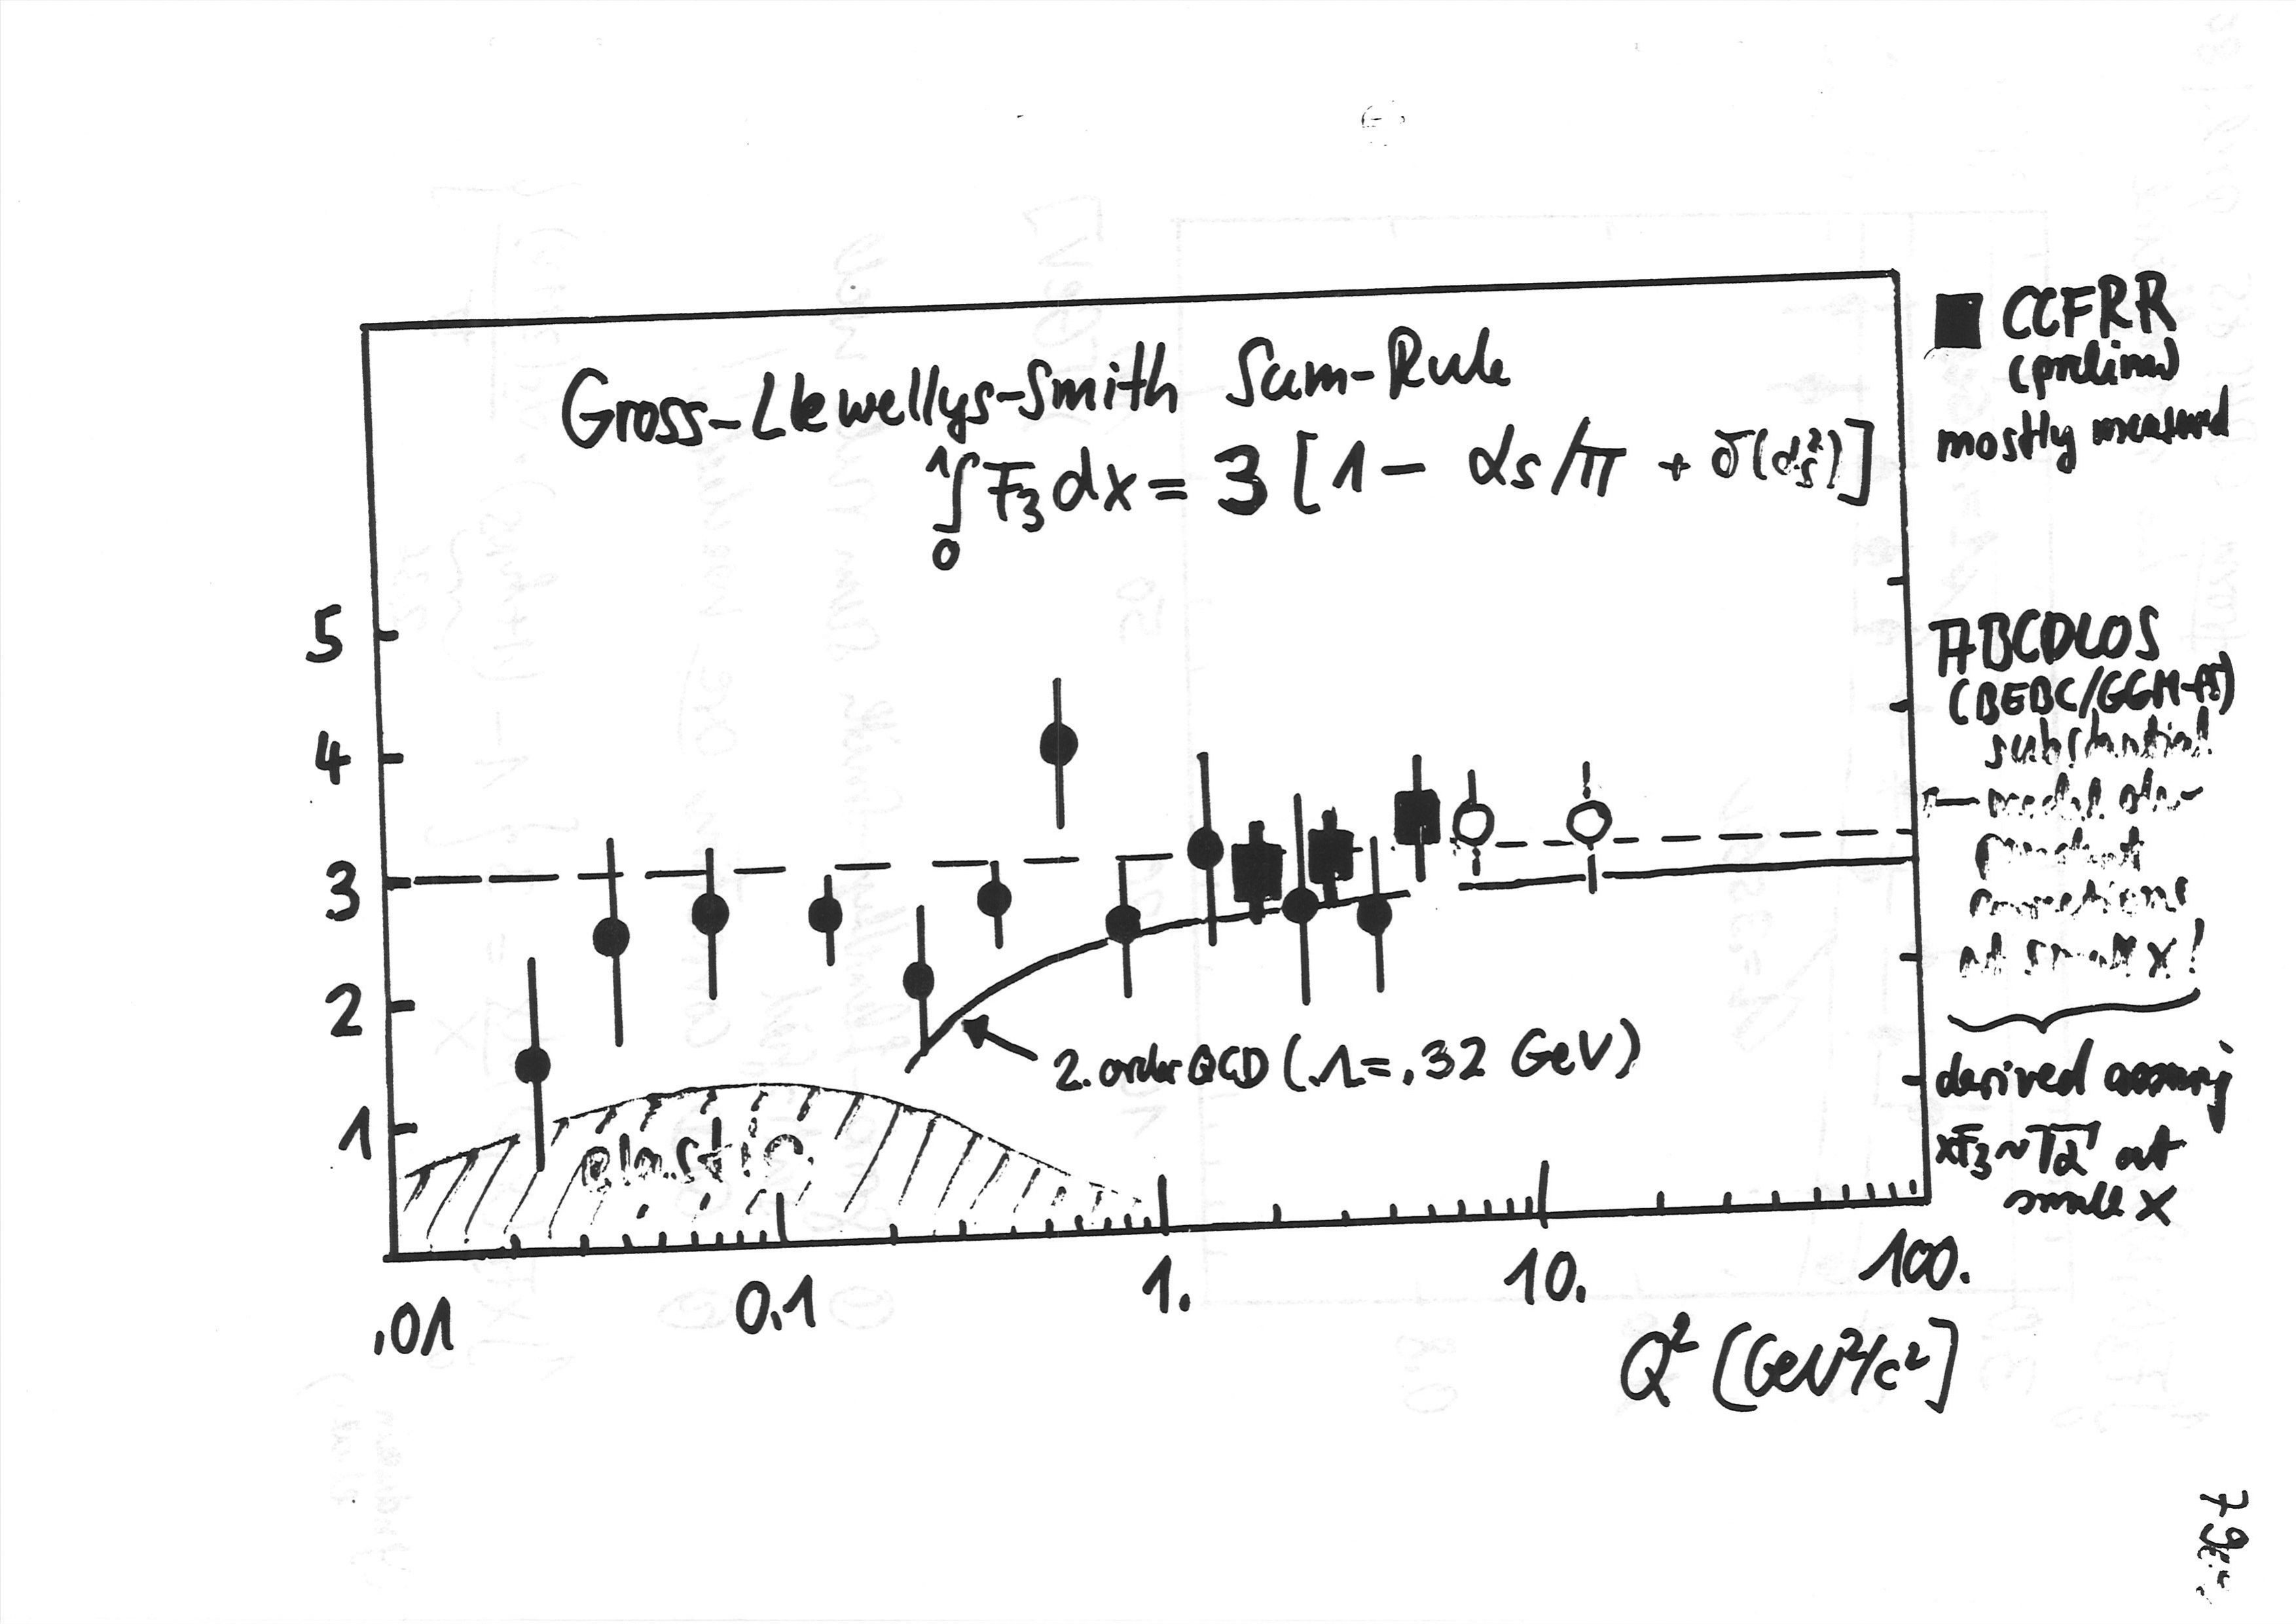 Gross-Llewellys-Smith Sum-Rule
1∫0 F3 dx = 3 [1 - αs/π + σ(αs²)]
5
4
3
2
1
elastic
2. order QCD (Λ=.32 GeV)
.01
0.1
1.
10.
100.
Q² [GeV²/c²]
CCFRR
(prelim)
mostly measured
ABCDLOS
(BEBC/GGM-PS)
substantial
model de-
pendent
corrections
at small x!
derived assuming
xF3 ~ at
small x